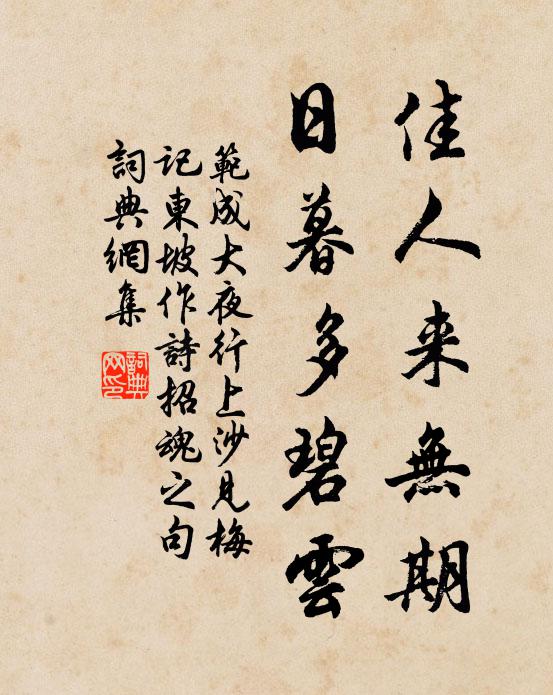 佳人来無期
日暮多碧雲
範成大夜行上沙見梅
記東坡作詩招魂之句
詞典網集
詞典
网印